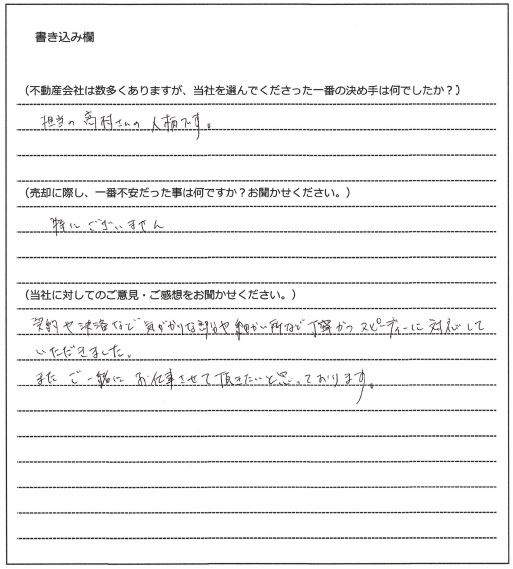 書き込み欄
(不動産会社は数多くありますが、当社を選んでくださった一番の決め手は何でしたか？)
担当の高村さんの人柄です。
(売却に際し、一番不安だった事は何ですか？お聞かせください。)
特にございません
(当社に対してのご意見・ご感想をお聞かせください。)
契約や決済など気がかりな部分や細かい所など丁寧かつスピーディーに対応して
いただきました。
またご一緒にお仕事させて頂きたいと思っております。